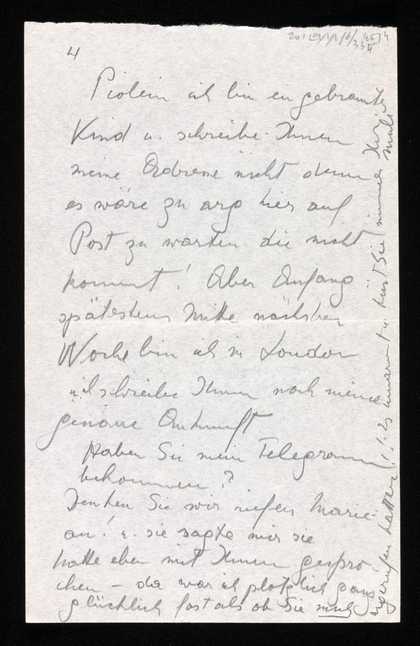 4
Piolein ich bin ein gebranntes
Kind u. schreibe Ihnen
meine Adresse nicht denn
es wäre zu arg hier auf
Post zu warten die nicht
kommt! Aber Anfang
spätestens Mitte nächster
Woche bin ich in London
u. ich schreibe Ihnen noch meine
genaue Ankunft
Haben Sie mein Telegramm
bekommen?
Denken Sie wir riefen Marie
an! u. sie sagte mir sie
hatte eben mit Ihnen gespro
chen – da war ich plötzlich ganz
glücklich fast als ob Sie mich
angerufen hätten!! Es umarmt u küsst Sie immer Ihr